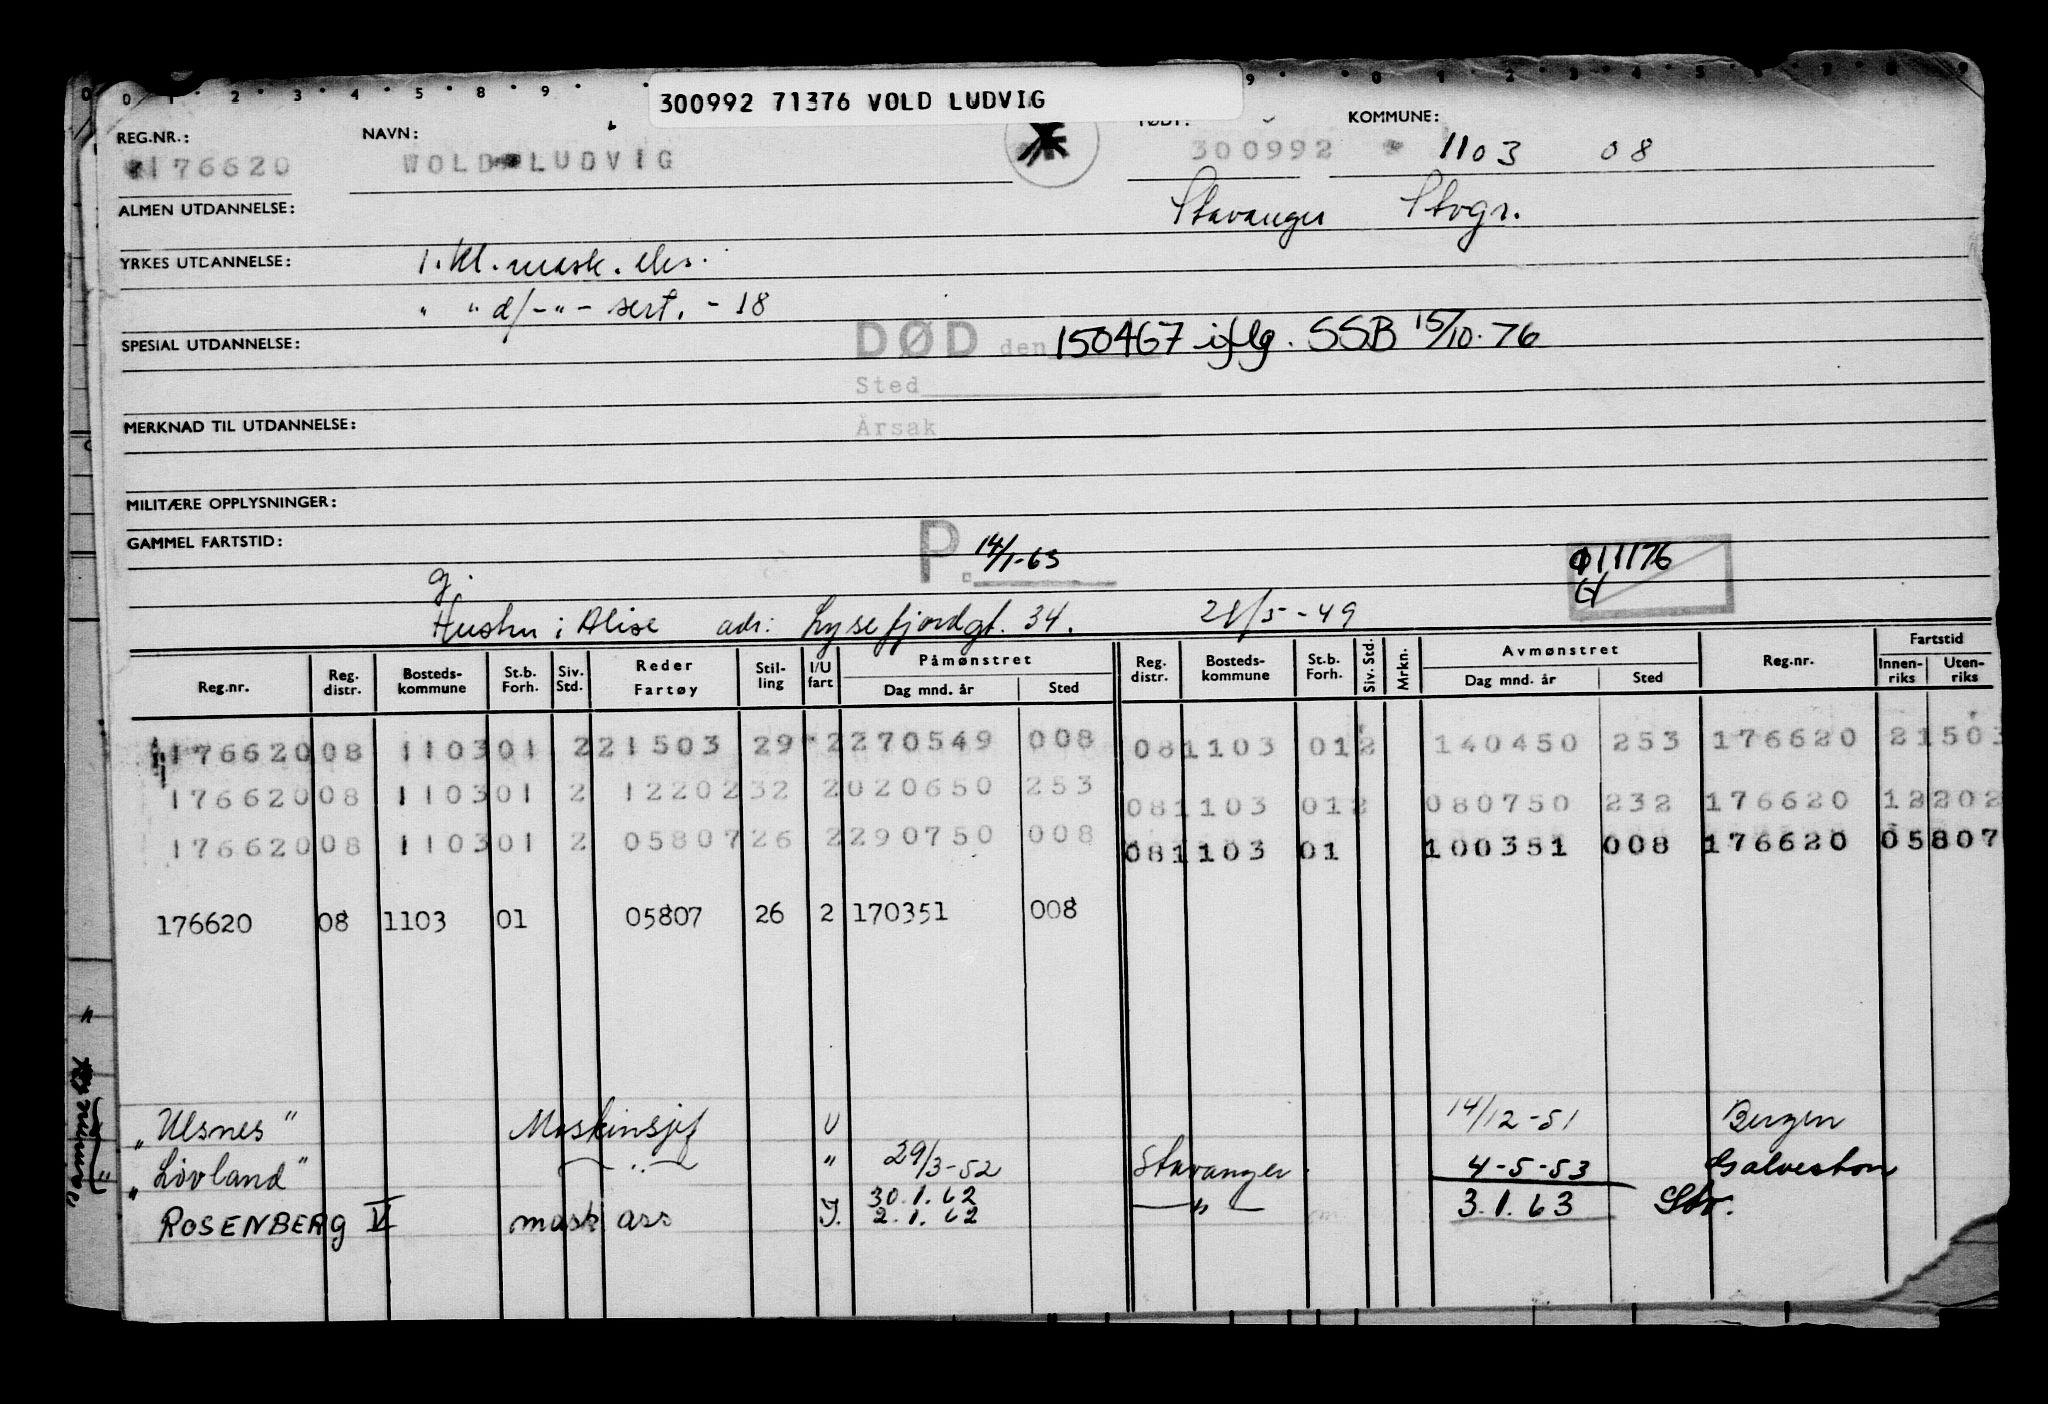 300992 71376 VOLD LUDVIG
REG.NR.: NAVN: FØDT: KOMMUNE:
176620 WOLD LUDVIG 300992 1103 08
ALMEN UTDANNELSE: Stavanger Stvgr.
YRKES UTDANNELSE: 1. kl. mask. eks.
" " d/-"- sert. - 18
SPESIAL UTDANNELSE: DØD den 150467 iflg. SSB 15/10.76
Sted
MERKNAD TIL UTDANNELSE: Årsak
MILITÆRE OPPLYSNINGER:
GAMMEL FARTSTID: P. 14/1-63 011176
g.
Hustru: Alise adr: Lysefjordgt. 34. 28/5-49
Reg.nr. Reg. distr. Bosteds-kommune St.b. Forh. Siv. Std. Reder Fartøy Stil-ling I/U fart Påmønstret Dag mnd. år Sted Reg. distr. Bosteds-kommune St.b. Forh. Siv. Std. Mrkn. Avmønstret Dag mnd. år Sted Reg.nr. Fartstid Innen-riks Uten-riks
176620 08 1103 01 2 21503 29 2 270549 008 08 1103 01 2 140450 253 176620 21503
176620 08 1103 01 2 12202 32 2 020650 253 08 1103 01 2 080750 232 176620 12202
176620 08 1103 01 2 05807 26 2 290750 008 08 1103 01 100351 008 176620 05807
176620 08 1103 01 05807 26 2 170351 008
"Ulsnes" Maskinsjef U 14/12-51 Bergen
"Lovland" — " — " 29/3-52 Stavanger 4-5-53 Galveston
30.1.62
ROSENBERG V mask ass I. 2.1.62 — " — 3.1.63 Stv.